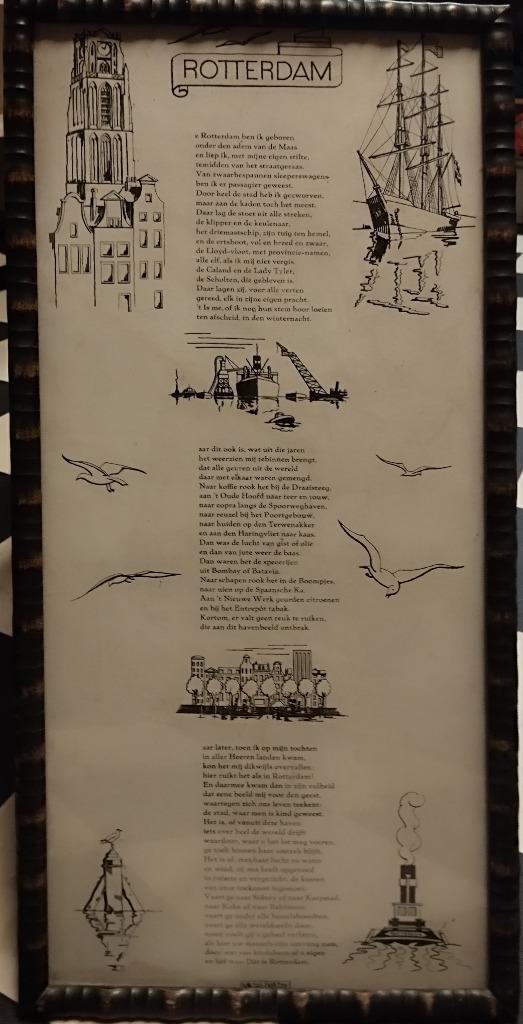 ROTTERDAM
e Rotterdam ben ik geboren
onder den adem van de Maas
en liep ik, met mijne eigen stilte,
temidden van het straatgeraas.
Van zwaarbespannen sleeperswagens
ben ik er passagier geweest.
Door heel de stad heb ik gezworven,
maar aan de kaden toch het meest.
Daar lag de stoet uit alle streken,
de klipper en de keulenaar,
het driemastschip, zijn tuig ten hemel,
en de ertsboot, vol en breed en zwaar,
de Lloyd-vloot, met provincie-namen,
alle elf, als ik mij niet vergis,
de Caland en de Lady Tyler,
de Scholten, die gebleven is.
Daar lagen zij, voor alle verten
gereed, elk in zijne eigen pracht.
't Is me, of ik nog hun stem hoor loeien
ten afscheid, in den winternacht.
aar dit ook is, wat uit die jaren
het weerzien mij tebinnen brengt,
dat alle geuren uit de wereld
daar met elkaar waren gemengd.
Naar koffie rook het bij de Draaisteeg,
aan 't Oude Hoofd naar teer en touw,
naar copra langs de Spoorweghaven,
naar reuzel bij het Poortgebouw,
naar huiden op den Terwenakker
en aan den Haringvliet naar kaas.
Dan was de lucht van gist of olie
en dan van jute weer de baas.
Dan waren het de specerijen
uit Bombay of Batavia.
Naar schapen rook het in de Boompjes,
naar uien op de Spaansche Ka.
Aan 't Nieuwe Werk geurden citroenen
en bij het Entrepôt tabak.
Kortom, er valt geen reuk te ruiken,
die aan dit havenbeeld ontbrak.
aar later, toen ik op mijn tochten
in aller Heeren landen kwam,
kon het mij dikwijls overvallen:
hier ruikt het als in Rotterdam!
En daarmee kwam dan in zijn volheid
dat eene beeld mij voor den geest,
waartegen zich ons leven teekent:
de stad, waar men is kind geweest.
Het is, of vanuit deze haven
iets over heel de wereld drijft
waardoor, waar u het lot mag voeren,
Het is of, met haar lucht en water
en wind, zij
naar Kobe of naar
en Dit is Rotterdam.